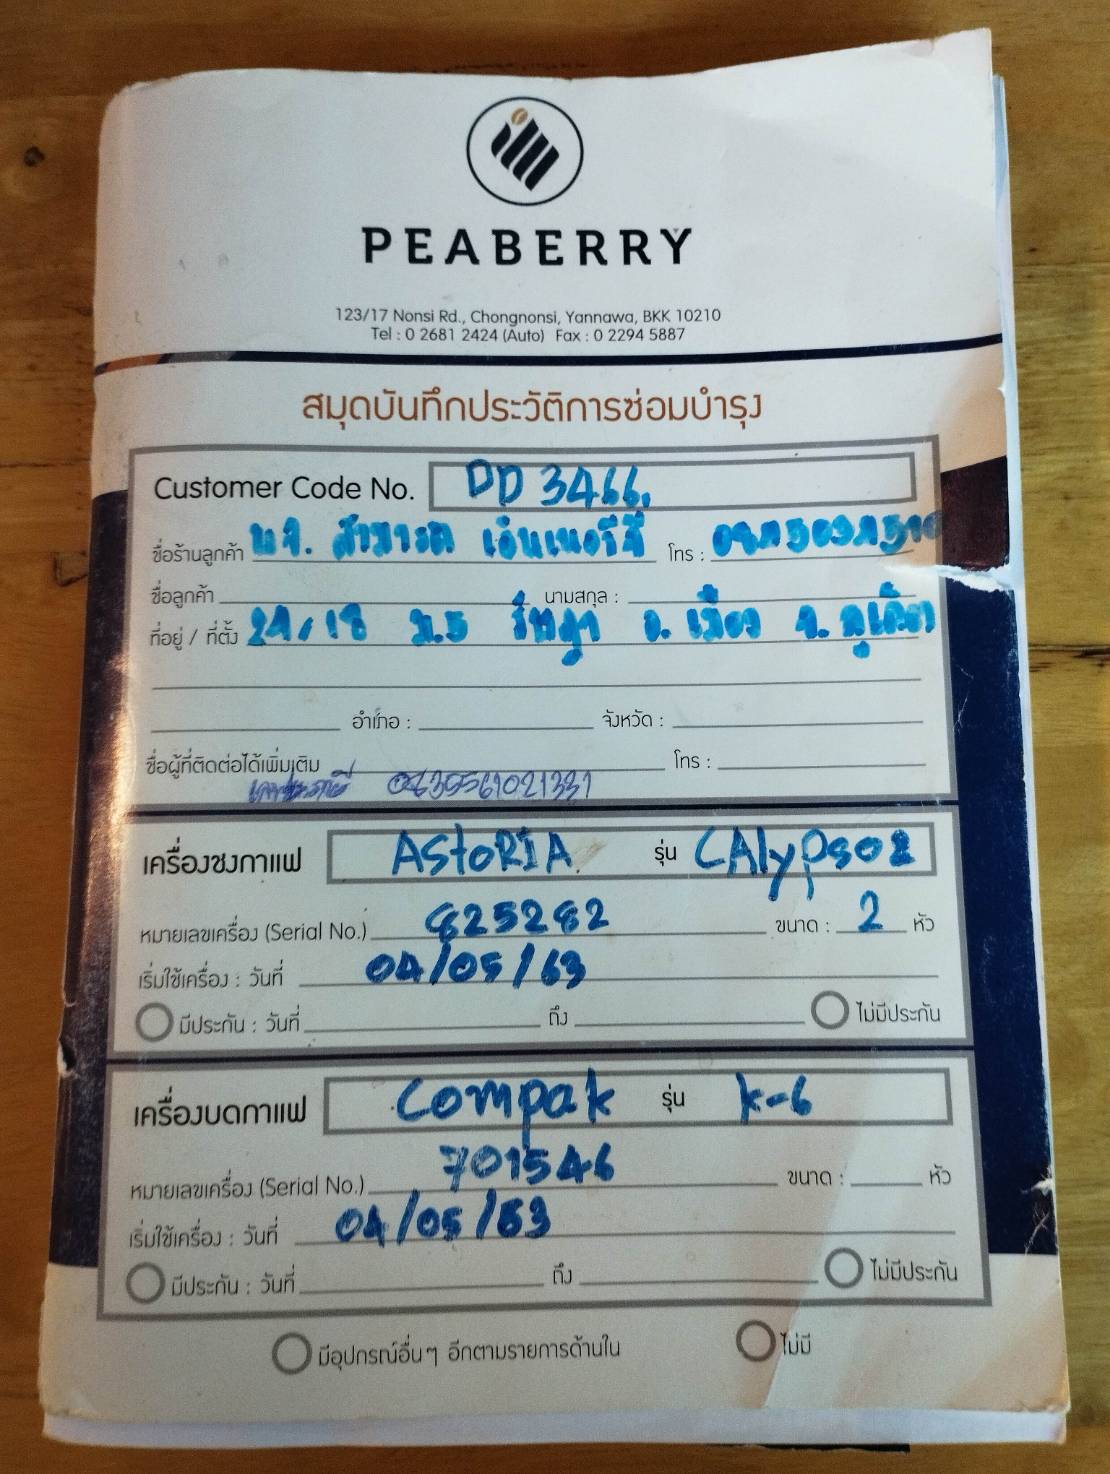 PEABERRY
123/17 Nonsi Rd., Chongnonsi, Yannawa, BKK 10210
Tel : 0 2681 2424 (Auto) Fax : 0 2294 5887
สมุดบันทึกประวัติการซ่อมบำรุง
Customer Code No. DD 3466.
ชื่อร้านลูกค้า หจ. สามารถ เอ็นเนอร์ยี่ โทร :
ชื่อลูกค้า นามสกุล :
ที่อยู่ / ที่ตั้ง 24/18 ม.5 รัษฎา อ. เมือง จ. ภูเก็ต
อำเภอ : จังหวัด :
ชื่อผู้ที่ติดต่อได้เพิ่มเติม โทร :
เครื่องชงกาแฟ AStoRIA รุ่น CAlypso2
หมายเลขเครื่อง (Serial No.) 825282 ขนาด : 2 หัว
เริ่มใช้เครื่อง : วันที่ 04/05/63
มีประกัน : วันที่ ถึง ไม่มีประกัน
เครื่องบดกาแฟ Compak รุ่น k-6
หมายเลขเครื่อง (Serial No.) 701546 ขนาด : หัว
เริ่มใช้เครื่อง : วันที่ 04/05/63
มีประกัน : วันที่ ถึง ไม่มีประกัน
มีอุปกรณ์อื่นๆ อีกตามรายการด้านใน ไม่มี